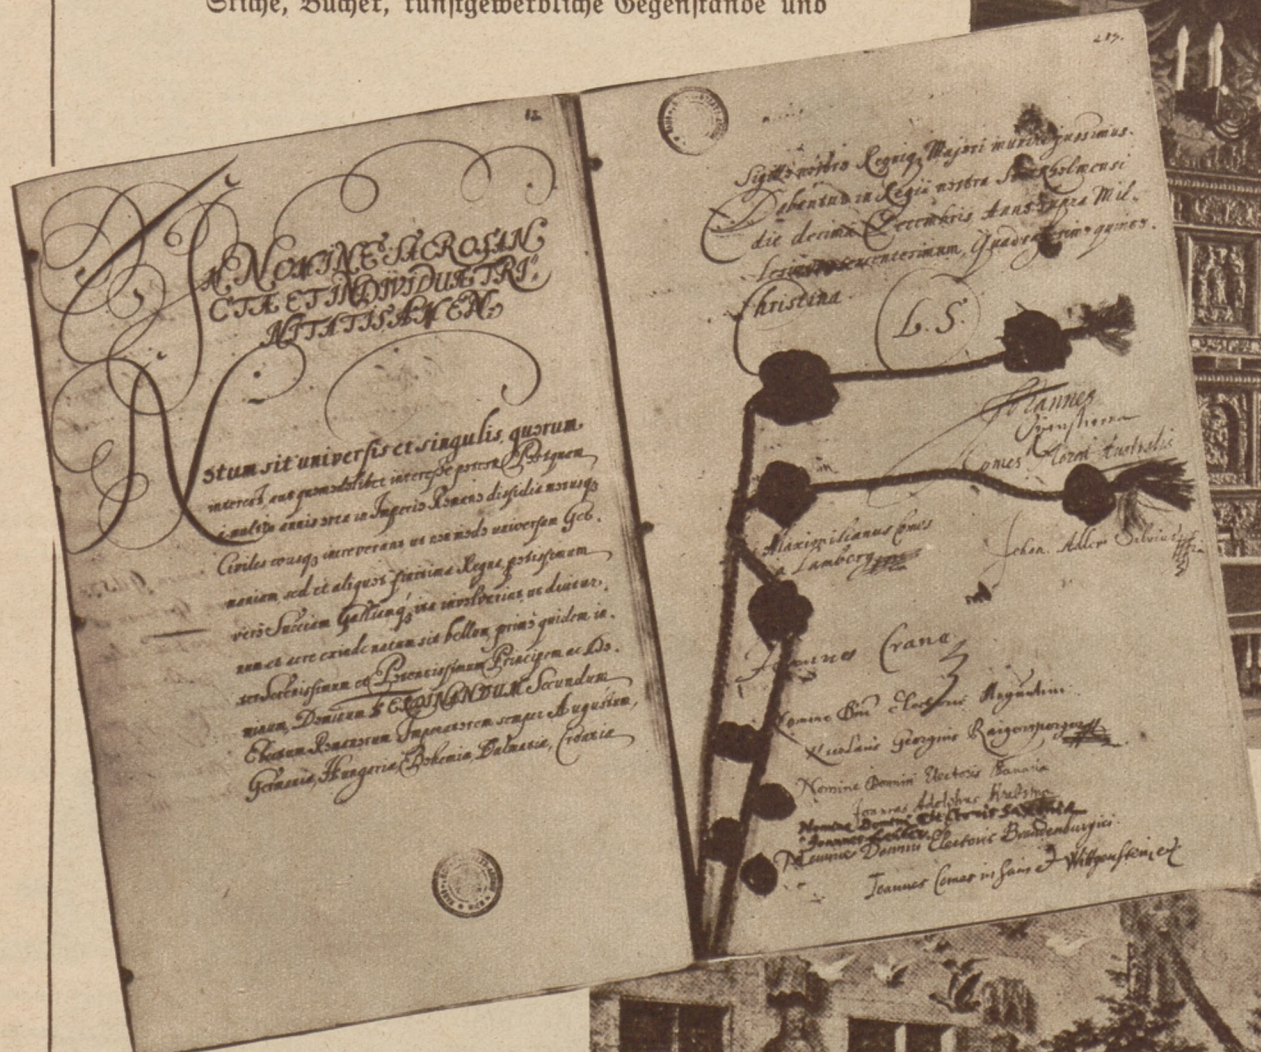 Stiche, Bücher, kunstgewerbliche Gegenstände und
12.
IN NOMINE SACROSAN
CTÆ ET INDIVIDUÆ TRI
NITATIS AMEN.
Notum sit universis et singulis, quorum
interest aut quomodolibet interesse potest. Postquam
a multis annis orta in Imperio Romano dissidia motusq
Civiles eousq increverant ut non modo universam Ger
maniam, sed et aliquot finitima Regna, potissimum
vero Sueciam Galliamq, ita involverint, ut diutur
num et acre exinde natum sit bellum, primo quidem in
ter Serenissimum et Potentissimum Principem ac Do
minum, Dominum FERDINANDUM Secundum
Electum Romanorum Imperatorem semper Augustum,
Germaniæ, Hungariæ, Bohemiæ, Dalmatiæ, Croatiæ
Sigillo nostro Regniq Majori muniri jussimus.
Dabantur in Regia nostra Stockholmensi
die decima Decembris Anno supra Mil
lesimum sexcentesimum, Quadragesimo quinto.
Christina.
L. S.
Johannes
Oxenstierna
Comes Moreæ Australis
Maximilianus Comes
a Lamberg
Johan. Adler Salvius
Joannes Crane
Nomine Dni Electoris Moguntini
Nicolaus Georgius Raigersperger
Nomine Domini Electoris Bavariæ
Joannes Adolphus Krebsmer
Nomine Domini Electoris Saxoniæ
Joannes Leuber
Nomine Domini Electoris Brandenburgici
Joannes Comes in Sain et Wittgenstein